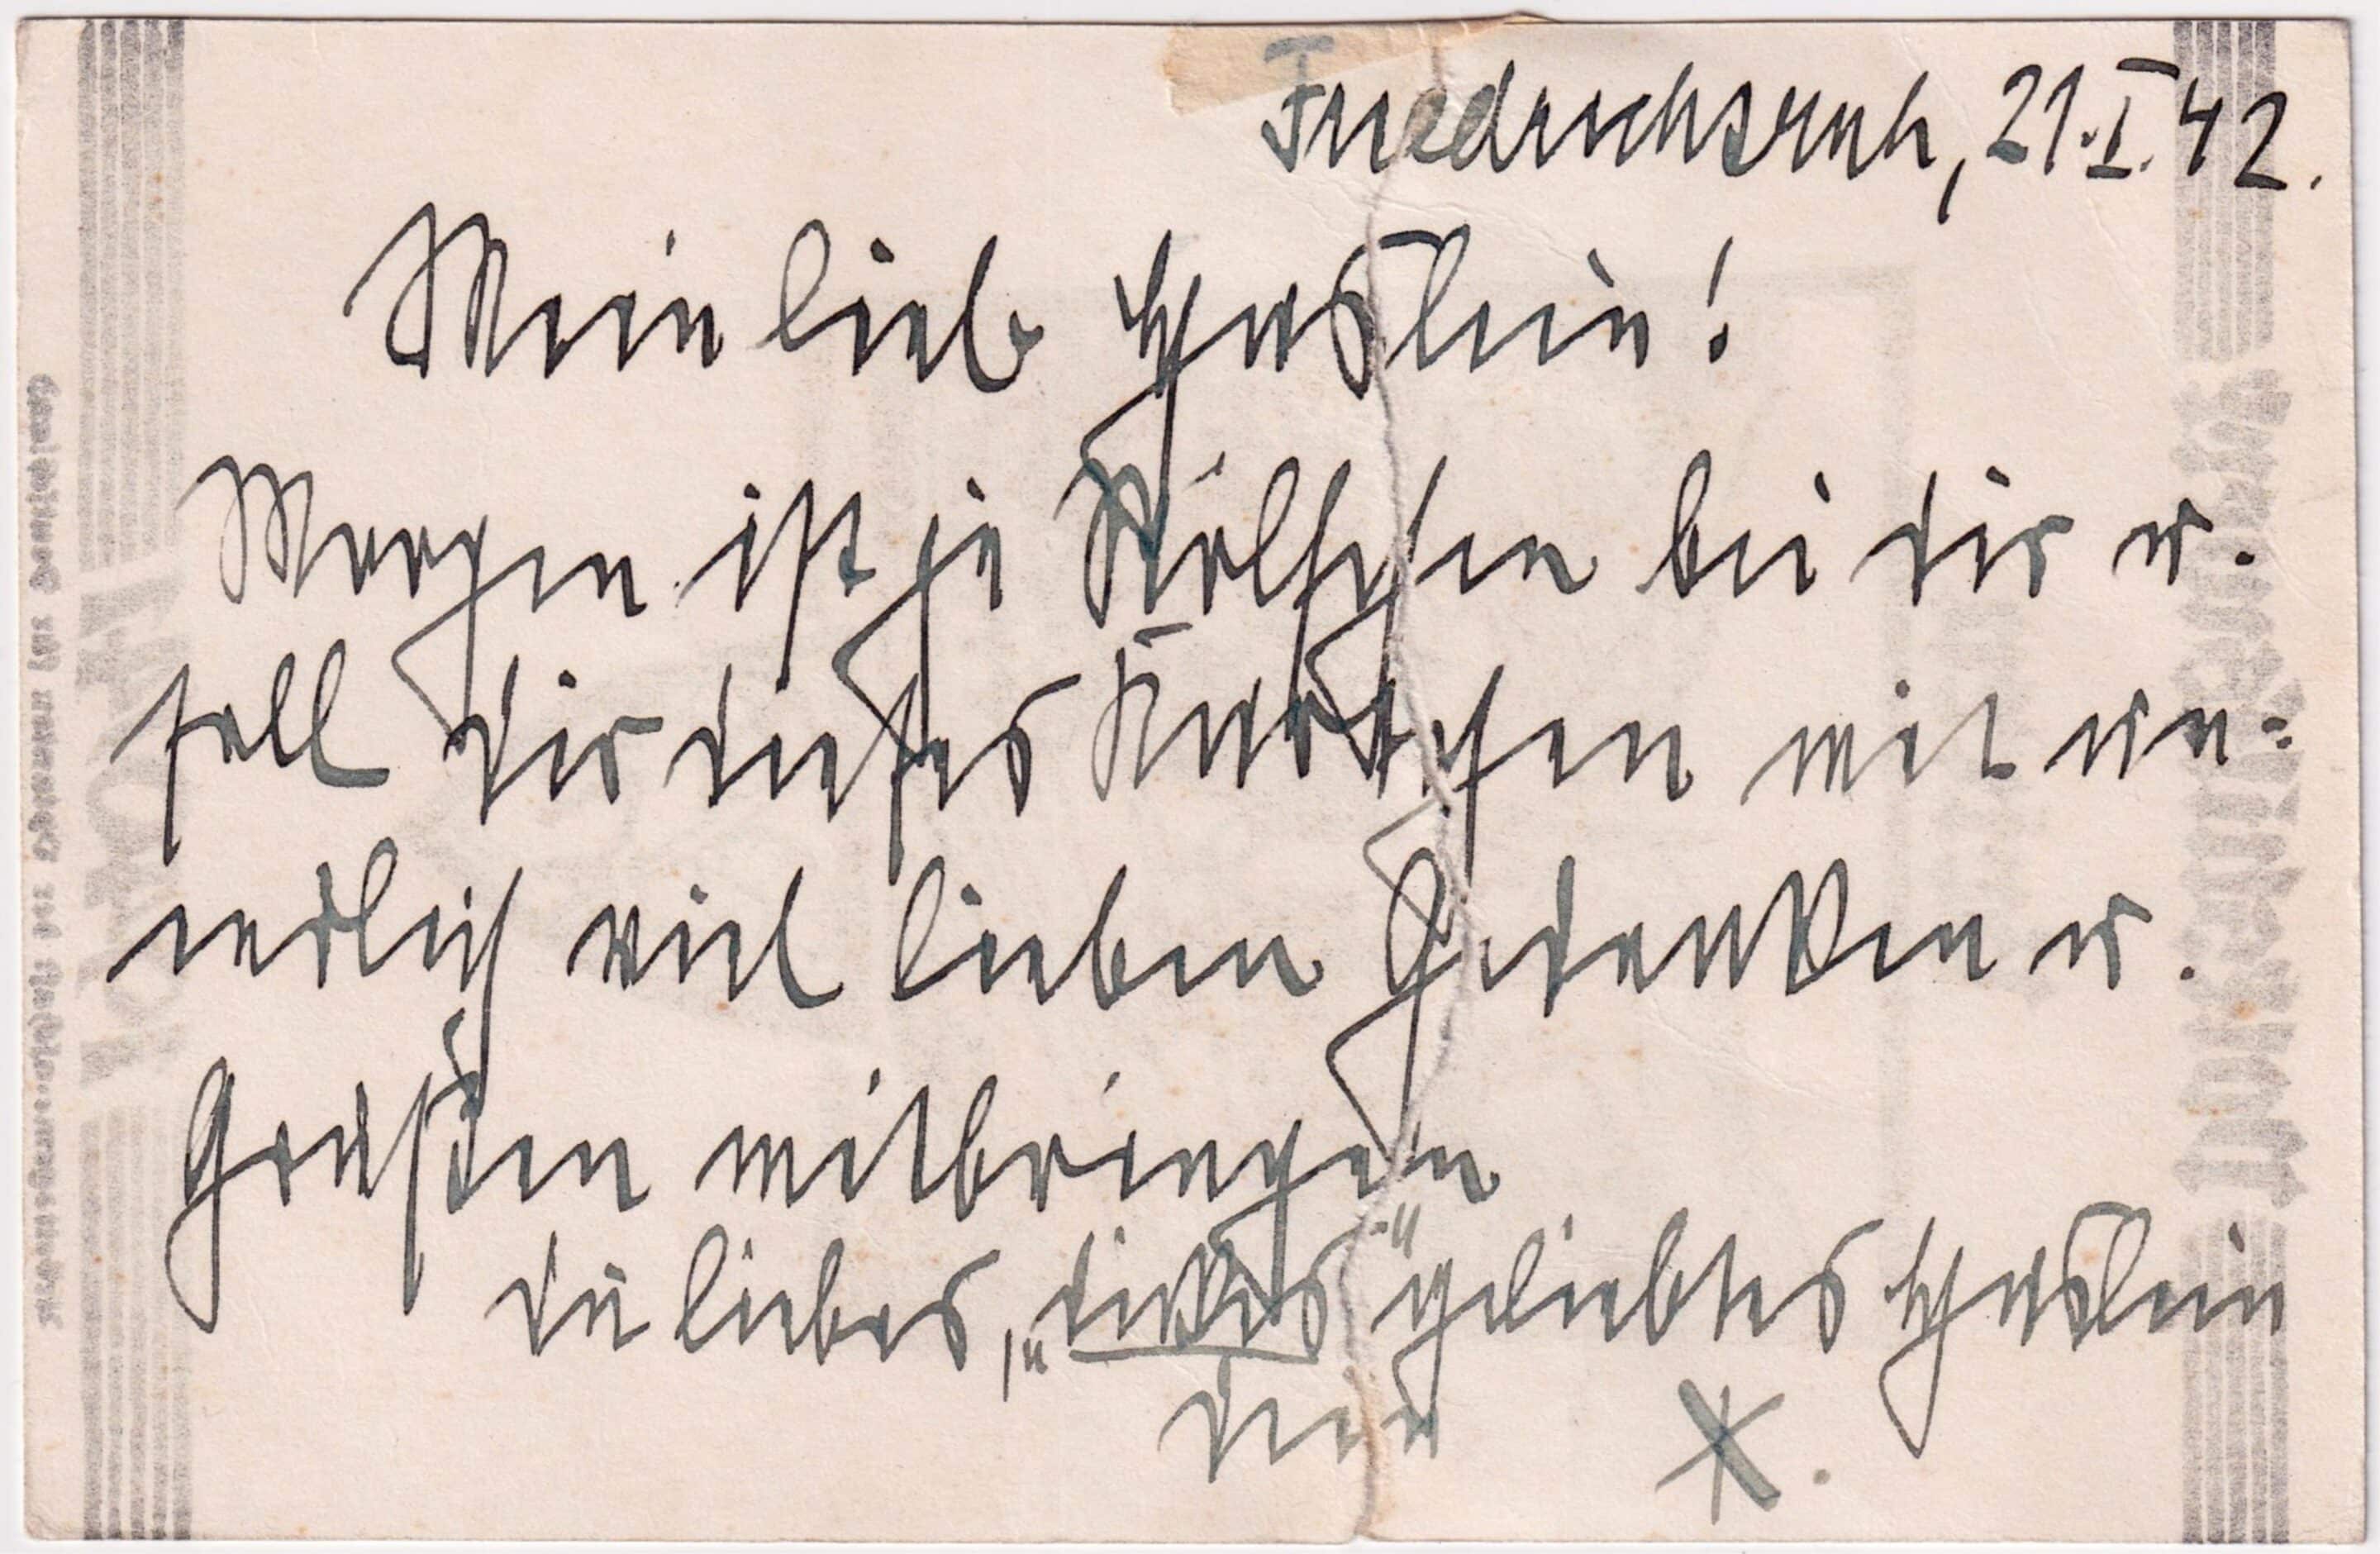 Friedrichsruh, 21.I.42.
Mein lieb Häslein!
Morgen ist ja bei dir u.
soll dir dieses Kärtchen mit un-
endlich viel lieben Gedanken u.
Grüßen mitbringen
du liebes, „dickes" geliebtes Häslein
dein X.